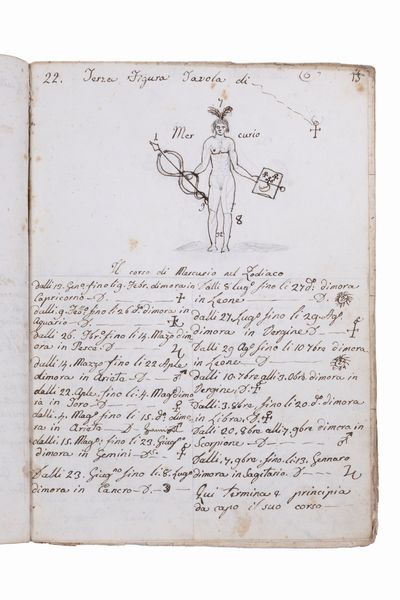 22. Terza Figura Tavola di
15
7
1
Mer curio
8
Il corso di Mercurio nel Zodiaco
dalli 13. Geno. fino li 9. Febr. dimora in
Capricorno D.
dalli 9. Febo. fino li 26 do. dimora in
Aquario D.
dalli 26. Fbro. fino li 14. Mazo dim
ora in Pesce. D.
dalli 14. Mazzo fino li 22 Aple.
dimora in Arieta D.
dalli 22. Aple. fino li 4. Mago dimo
ra in Toro D.
dalli 4. Mago. fino li 15. do. dimo
ra in Arieta D.
dalli 15. Mago. fino li 23. Giugo.
dimora in Gemini D.
Dalli 23. Giugno fino li 8. Lugo
dimora in Cancro D.
Dalli 8 Lugo. fino li 27 do. dimora
in Leone D.
dalli 27. Lugo. fino li 29. Ago.
dimora in Vergine D.
Dalli 29 Ago. fino li 10 7bre dimora
in Leone D.
dalli 10. 7bre alli 3. 8bre. dimora in
Vergine, D.
Dalli 3. 8bre, fino li 20. do. dimora
in Libra, D.
Dalli 20. 8bre alli 7. 9bre dimora in
Scorpione D.
Dalli 7. 9bre, fino. li 13. Gennaro
dimora in Sagitario. D
Qui termina & principia
da capo il suo corso